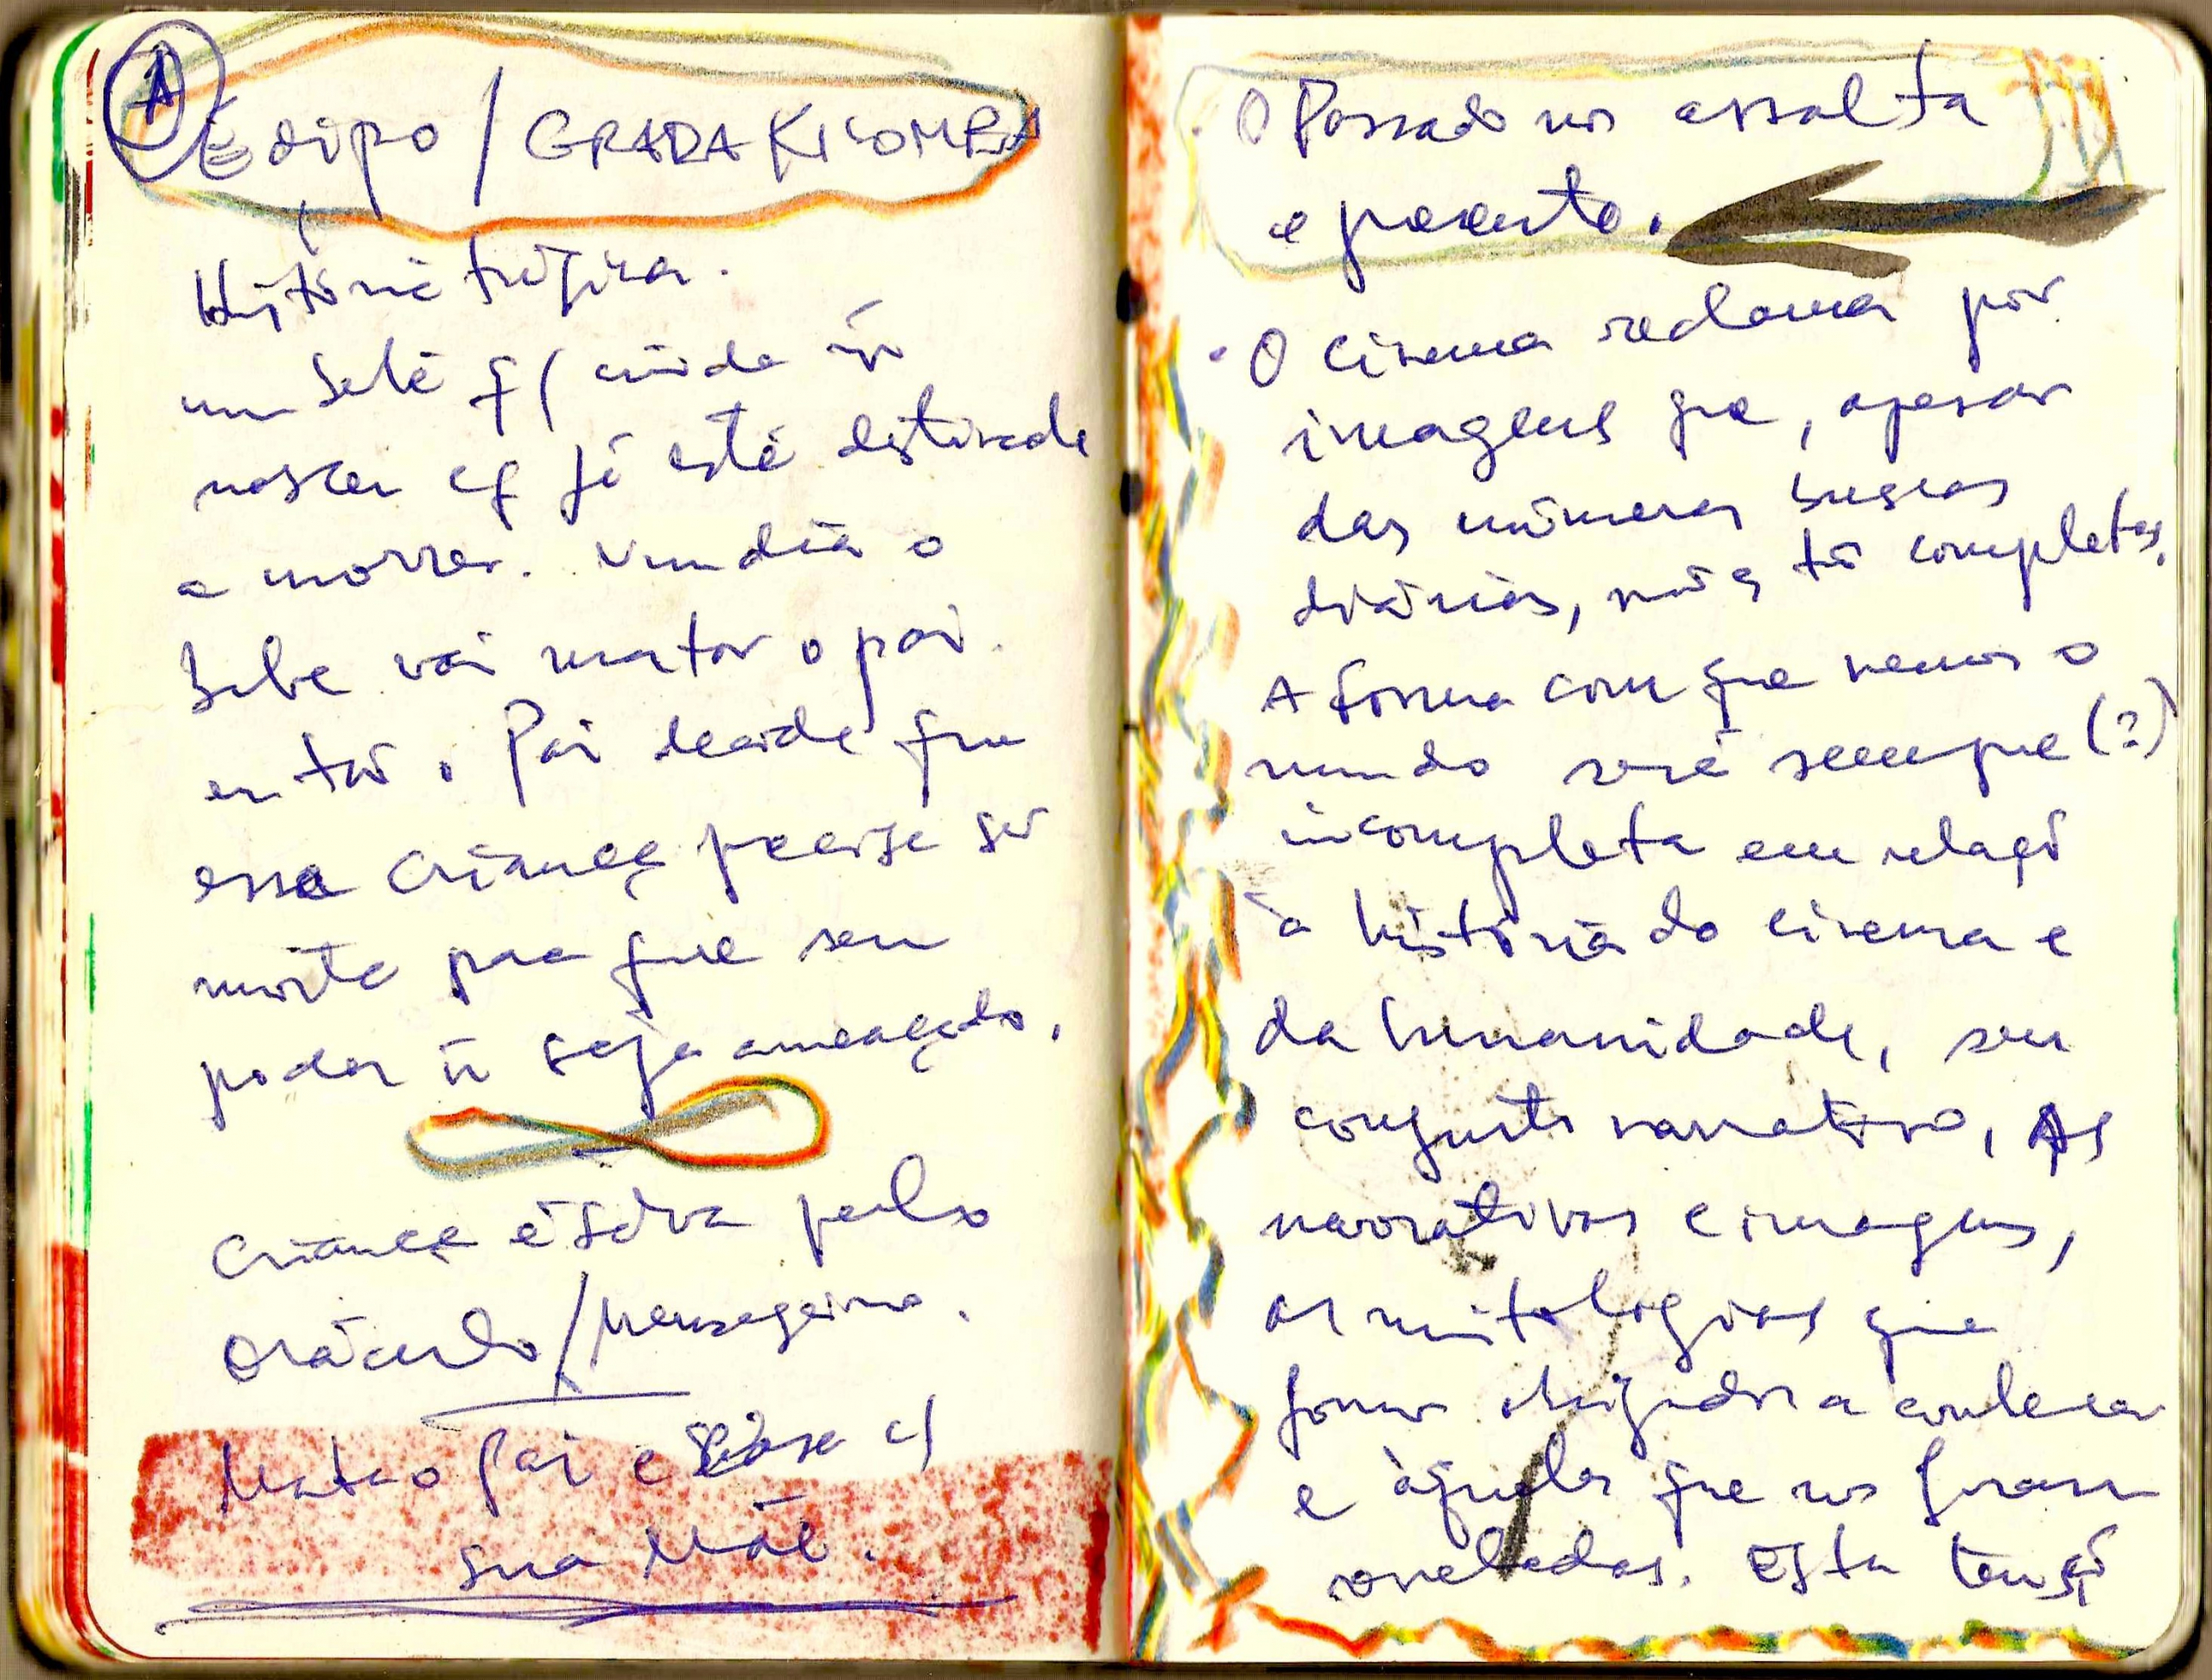 1
Édipo / GRADA KILOMBA
História trágica.
um bebê q/ ainda ñ
nasceu e q já está destinado
a morrer. Um dia o
bebe vai matar o pai.
então. Pai decide que
essa criança precisa ser
morta para que seu
poder ñ seja ameaçado.
criança é salva pelo
oráculo / mensageiro.
Mata o pai e casa c/
sua Mãe.
• O Passado nos assalta
e presente.
• O cinema reclama por
imagens que, apesar
das inúmeras buscas
diárias, não as tô completas.
A forma com que vemos o
mundo será sempre (?)
incompleta em relação
à história do cinema e
da humanidade, seu
conjunto narrativo. As
narrativas e imagens,
as mitologias que
fomos obrigados a conhecer
e àquelas que nos foram
reveladas. Esta tensão